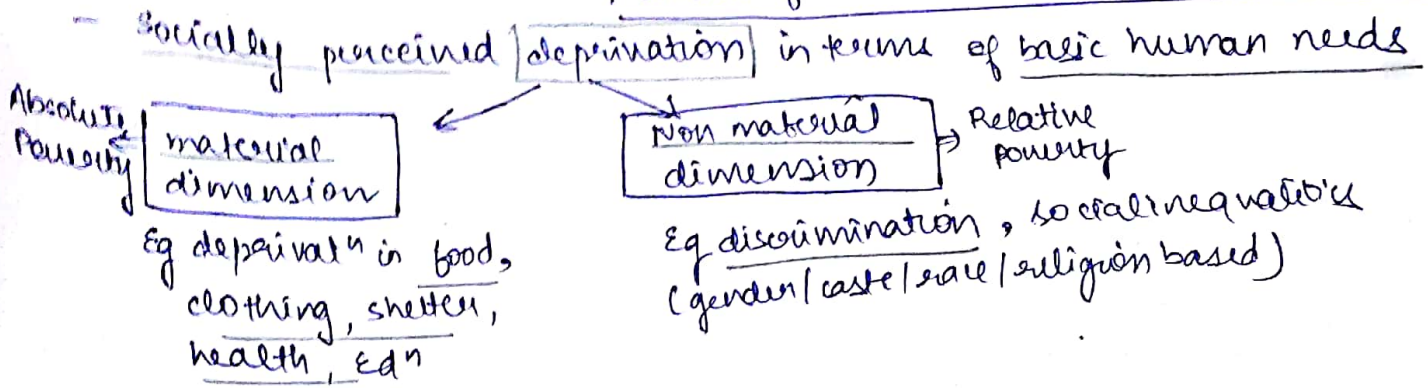 - Socially perceived deprivation in terms of basic human needs
Absolute
Poverty
material
dimension
Eg deprivatn in food,
clothing, shelter,
health, Edn
Non material
dimension
→ Relative
poverty
Eg discrimination, social inequalities
(gender/caste/race/religion based)